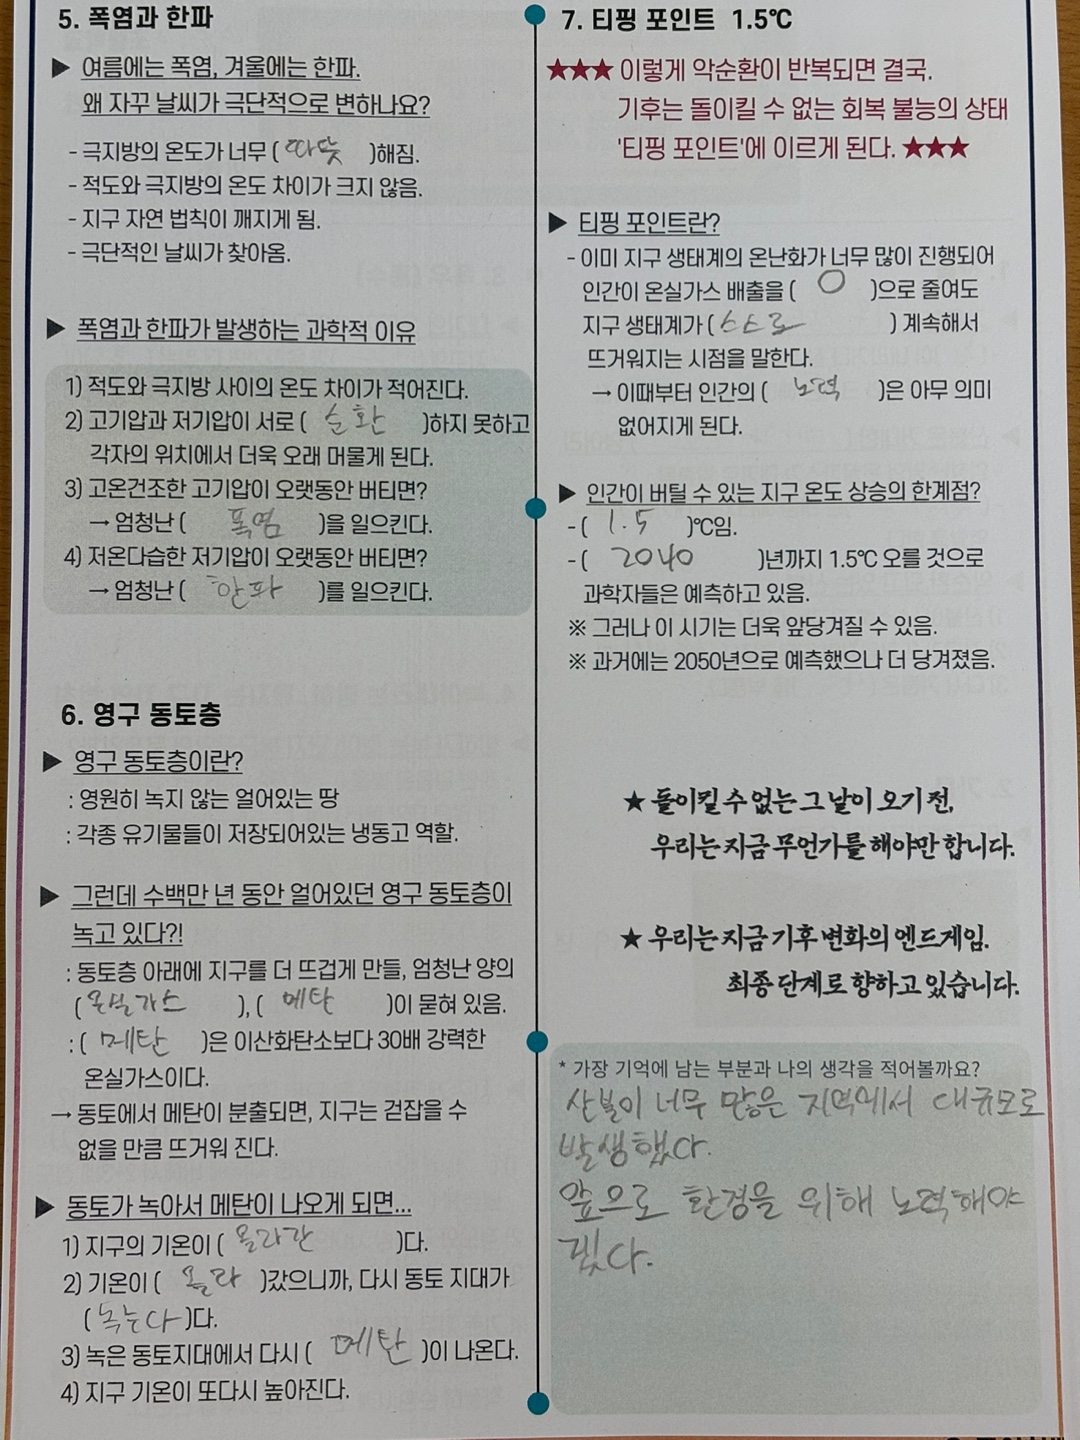 5. 폭염과 한파
▶ 여름에는 폭염, 겨울에는 한파.
왜 자꾸 날씨가 극단적으로 변하나요?
- 극지방의 온도가 너무 ( 따뜻 )해짐.
- 적도와 극지방의 온도 차이가 크지 않음.
- 지구 자연 법칙이 깨지게 됨.
- 극단적인 날씨가 찾아옴.
▶ 폭염과 한파가 발생하는 과학적 이유
1) 적도와 극지방 사이의 온도 차이가 적어진다.
2) 고기압과 저기압이 서로 ( 순환 )하지 못하고
각자의 위치에서 더욱 오래 머물게 된다.
3) 고온건조한 고기압이 오랫동안 버티면?
→ 엄청난 ( 폭염 )을 일으킨다.
4) 저온다습한 저기압이 오랫동안 버티면?
→ 엄청난 ( 한파 )를 일으킨다.
6. 영구 동토층
▶ 영구 동토층이란?
: 영원히 녹지 않는 얼어있는 땅
: 각종 유기물들이 저장되어있는 냉동고 역할.
▶ 그런데 수백만 년 동안 얼어있던 영구 동토층이
녹고 있다?!
: 동토층 아래에 지구를 더 뜨겁게 만들, 엄청난 양의
( 온실가스 ), ( 메탄 )이 묻혀 있음.
: ( 메탄 )은 이산화탄소보다 30배 강력한
온실가스이다.
→ 동토에서 메탄이 분출되면, 지구는 걷잡을 수
없을 만큼 뜨거워 진다.
▶ 동토가 녹아서 메탄이 나오게 되면...
1) 지구의 기온이 ( 올라간 )다.
2) 기온이 ( 올라 )갔으니까, 다시 동토 지대가
( 녹는다 )다.
3) 녹은 동토지대에서 다시 ( 메탄 )이 나온다.
4) 지구 기온이 또다시 높아진다.
7. 티핑 포인트 1.5℃
★★★ 이렇게 악순환이 반복되면 결국.
기후는 돌이킬 수 없는 회복 불능의 상태
'티핑 포인트'에 이르게 된다. ★★★
▶ 티핑 포인트란?
- 이미 지구 생태계의 온난화가 너무 많이 진행되어
인간이 온실가스 배출을 ( 0 )으로 줄여도
지구 생태계가 ( 스스로 ) 계속해서
뜨거워지는 시점을 말한다.
→ 이때부터 인간의 ( 노력 )은 아무 의미
없어지게 된다.
▶ 인간이 버틸 수 있는 지구 온도 상승의 한계점?
- ( 1.5 )℃임.
- ( 2040 )년까지 1.5℃ 오를 것으로
과학자들은 예측하고 있음.
※ 그러나 이 시기는 더욱 앞당겨질 수 있음.
※ 과거에는 2050년으로 예측했으나 더 당겨졌음.
★ 돌이킬 수 없는 그 날이 오기 전,
우리는 지금 무언가를 해야만 합니다.
★ 우리는 지금 기후 변화의 엔드게임.
최종 단계로 향하고 있습니다.
* 가장 기억에 남는 부분과 나의 생각을 적어볼까요?
산불이 너무 많은 지역에서 대규모로
발생했다.
앞으로 환경을 위해 노력해야
겠다.